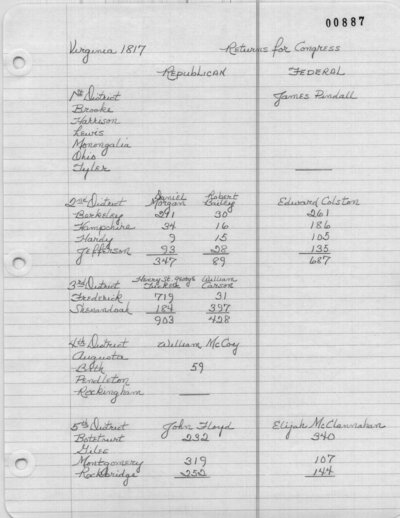 00887
Virginia 1817 Returns for Congress
REPUBLICAN FEDERAL
1st District James Pindall
Brooke
Harrison
Lewis
Monongalia
Ohio
Tyler
2nd District Daniel Morgan Robert Bailey Edward Colston
Berkeley 211 30 261
Hampshire 34 16 186
Hardy 9 15 105
Jefferson 93 28 135
347 89 687
3rd District Henry St. George Tucker William Carson
Frederick 719 31
Shenandoah 184 397
903 428
4th District William McCoy
Augusta
Bath 59
Pendleton
Rockingham
5th District John Floyd Elijah McClannahan
Botetourt 232 340
Giles
Montgomery 319 107
Rockbridge 252 144